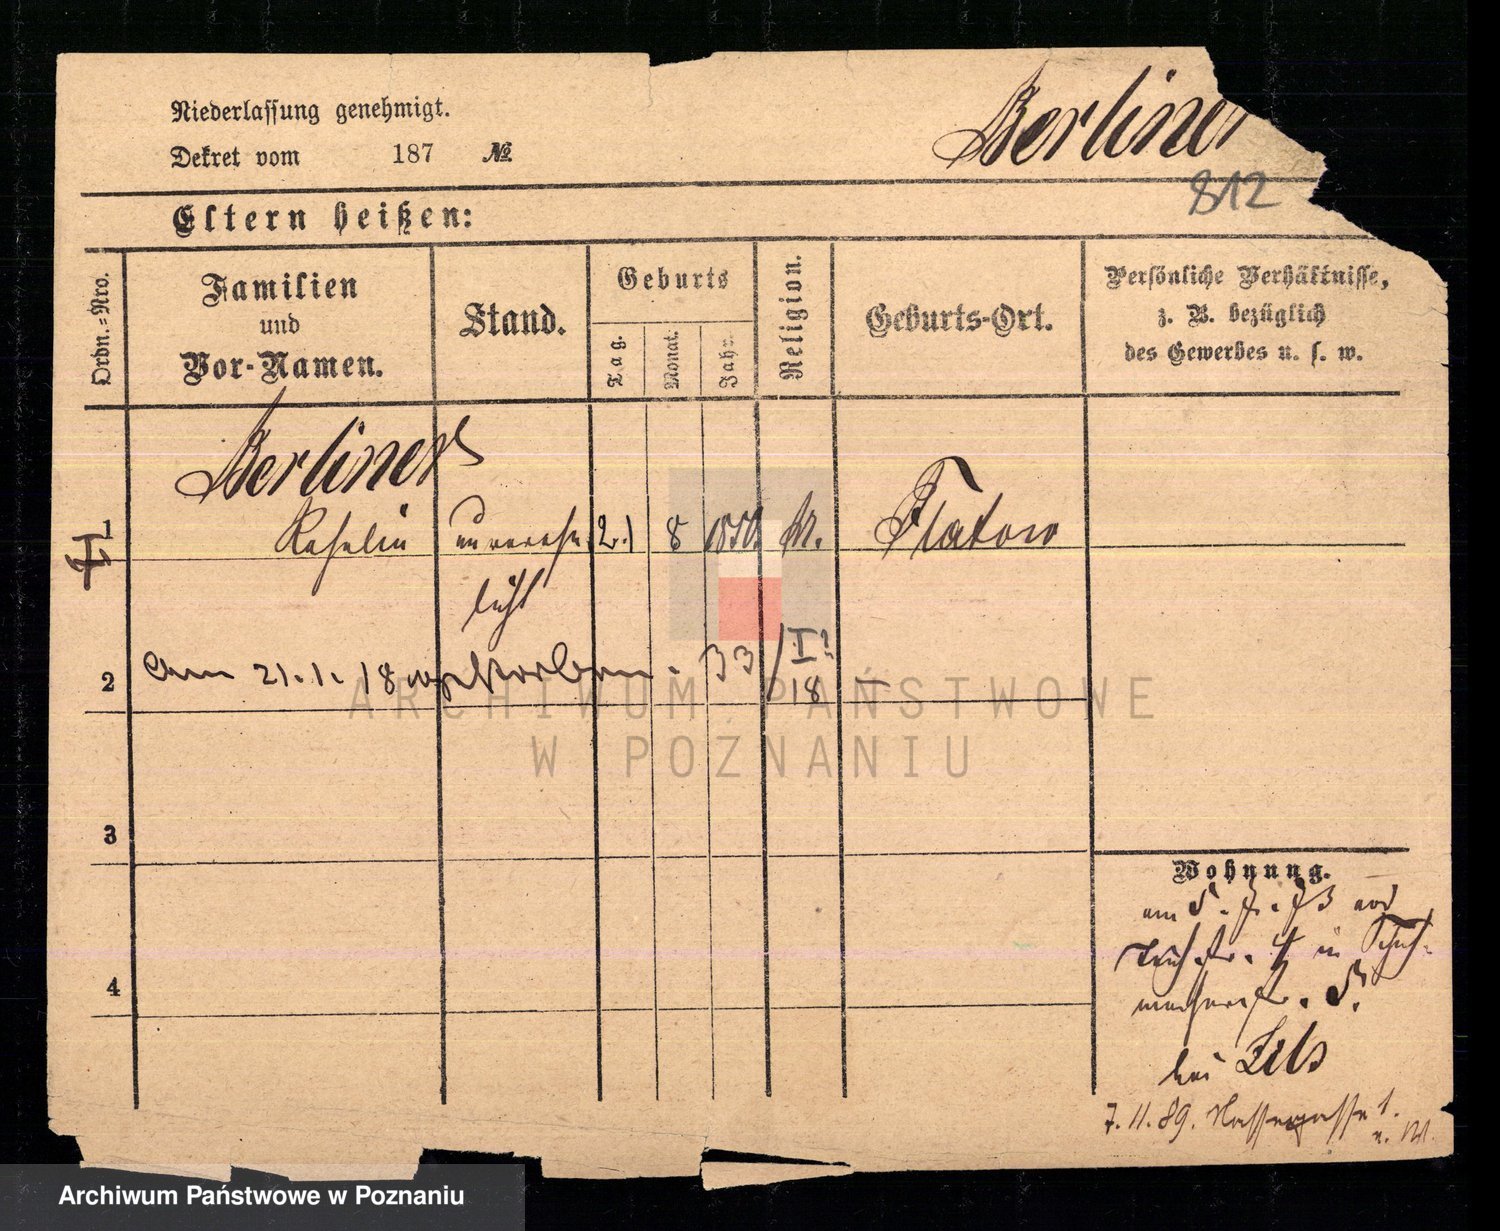 Niederlassung genehmigt.
Dekret vom 187 №
Berliner
812
Eltern heißen:
Ordn.=Nro.
Familien
und
Vor-Namen.
Stand.
Geburts
Tag.
Monat.
Jahr.
Religion.
Geburts-Ort.
Persönliche Verhältnisse,
z. B. bezüglich
des Gewerbes u. s. w.
Berliner
1 unverehe 21 8 1850 M. Flatow
licht
2 am 21.1.18 verstorben. 33/I 18
3
4
Wohnung.
am 5.7.73 von
4 in Schuh-
macherstr. 5.
bei
7.11.89. Nassegasse 1.
ARCHIWUM PAŃSTWOWE
W POZNANIU
Archiwum Państwowe w Poznaniu